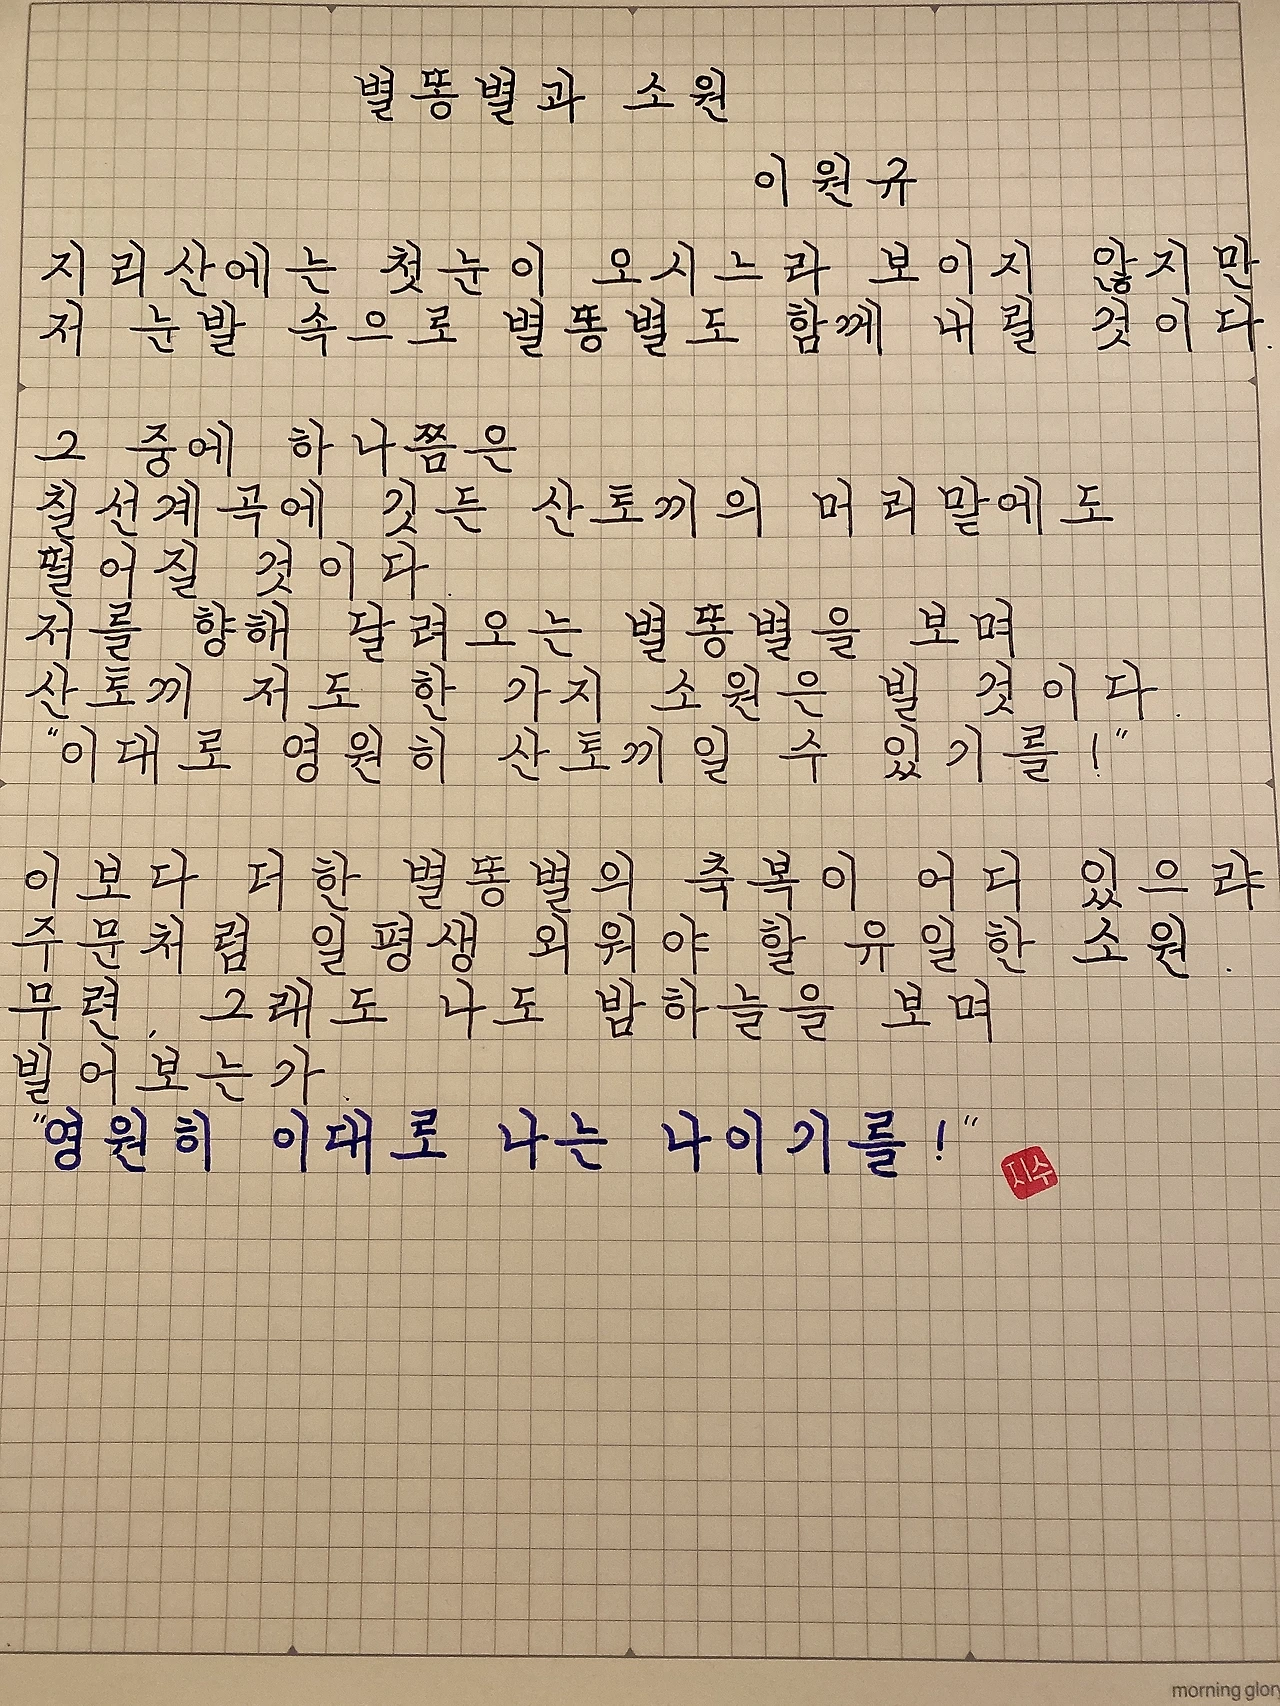 별똥별과 소원
이원규
지리산에는 첫눈이 오시느라 보이지 않지만
저 눈발 속으로 별똥별도 함께 내릴 것이다.
그 중에 하나쯤은
칠선계곡에 깃든 산토끼의 머리맡에도
떨어질 것이다.
저를 향해 달려오는 별똥별을 보며
산토끼 저도 한 가지 소원은 빌 것이다.
"이대로 영원히 산토끼일 수 있기를!"
이보다 더한 별똥별의 축복이 어디 있으랴
주문처럼 일평생 외워야 할 유일한 소원.
무련, 그래도 나도 밤하늘을 보며
빌어보는가.
"영원히 이대로 나는 나이기를!"
지수
morning glory